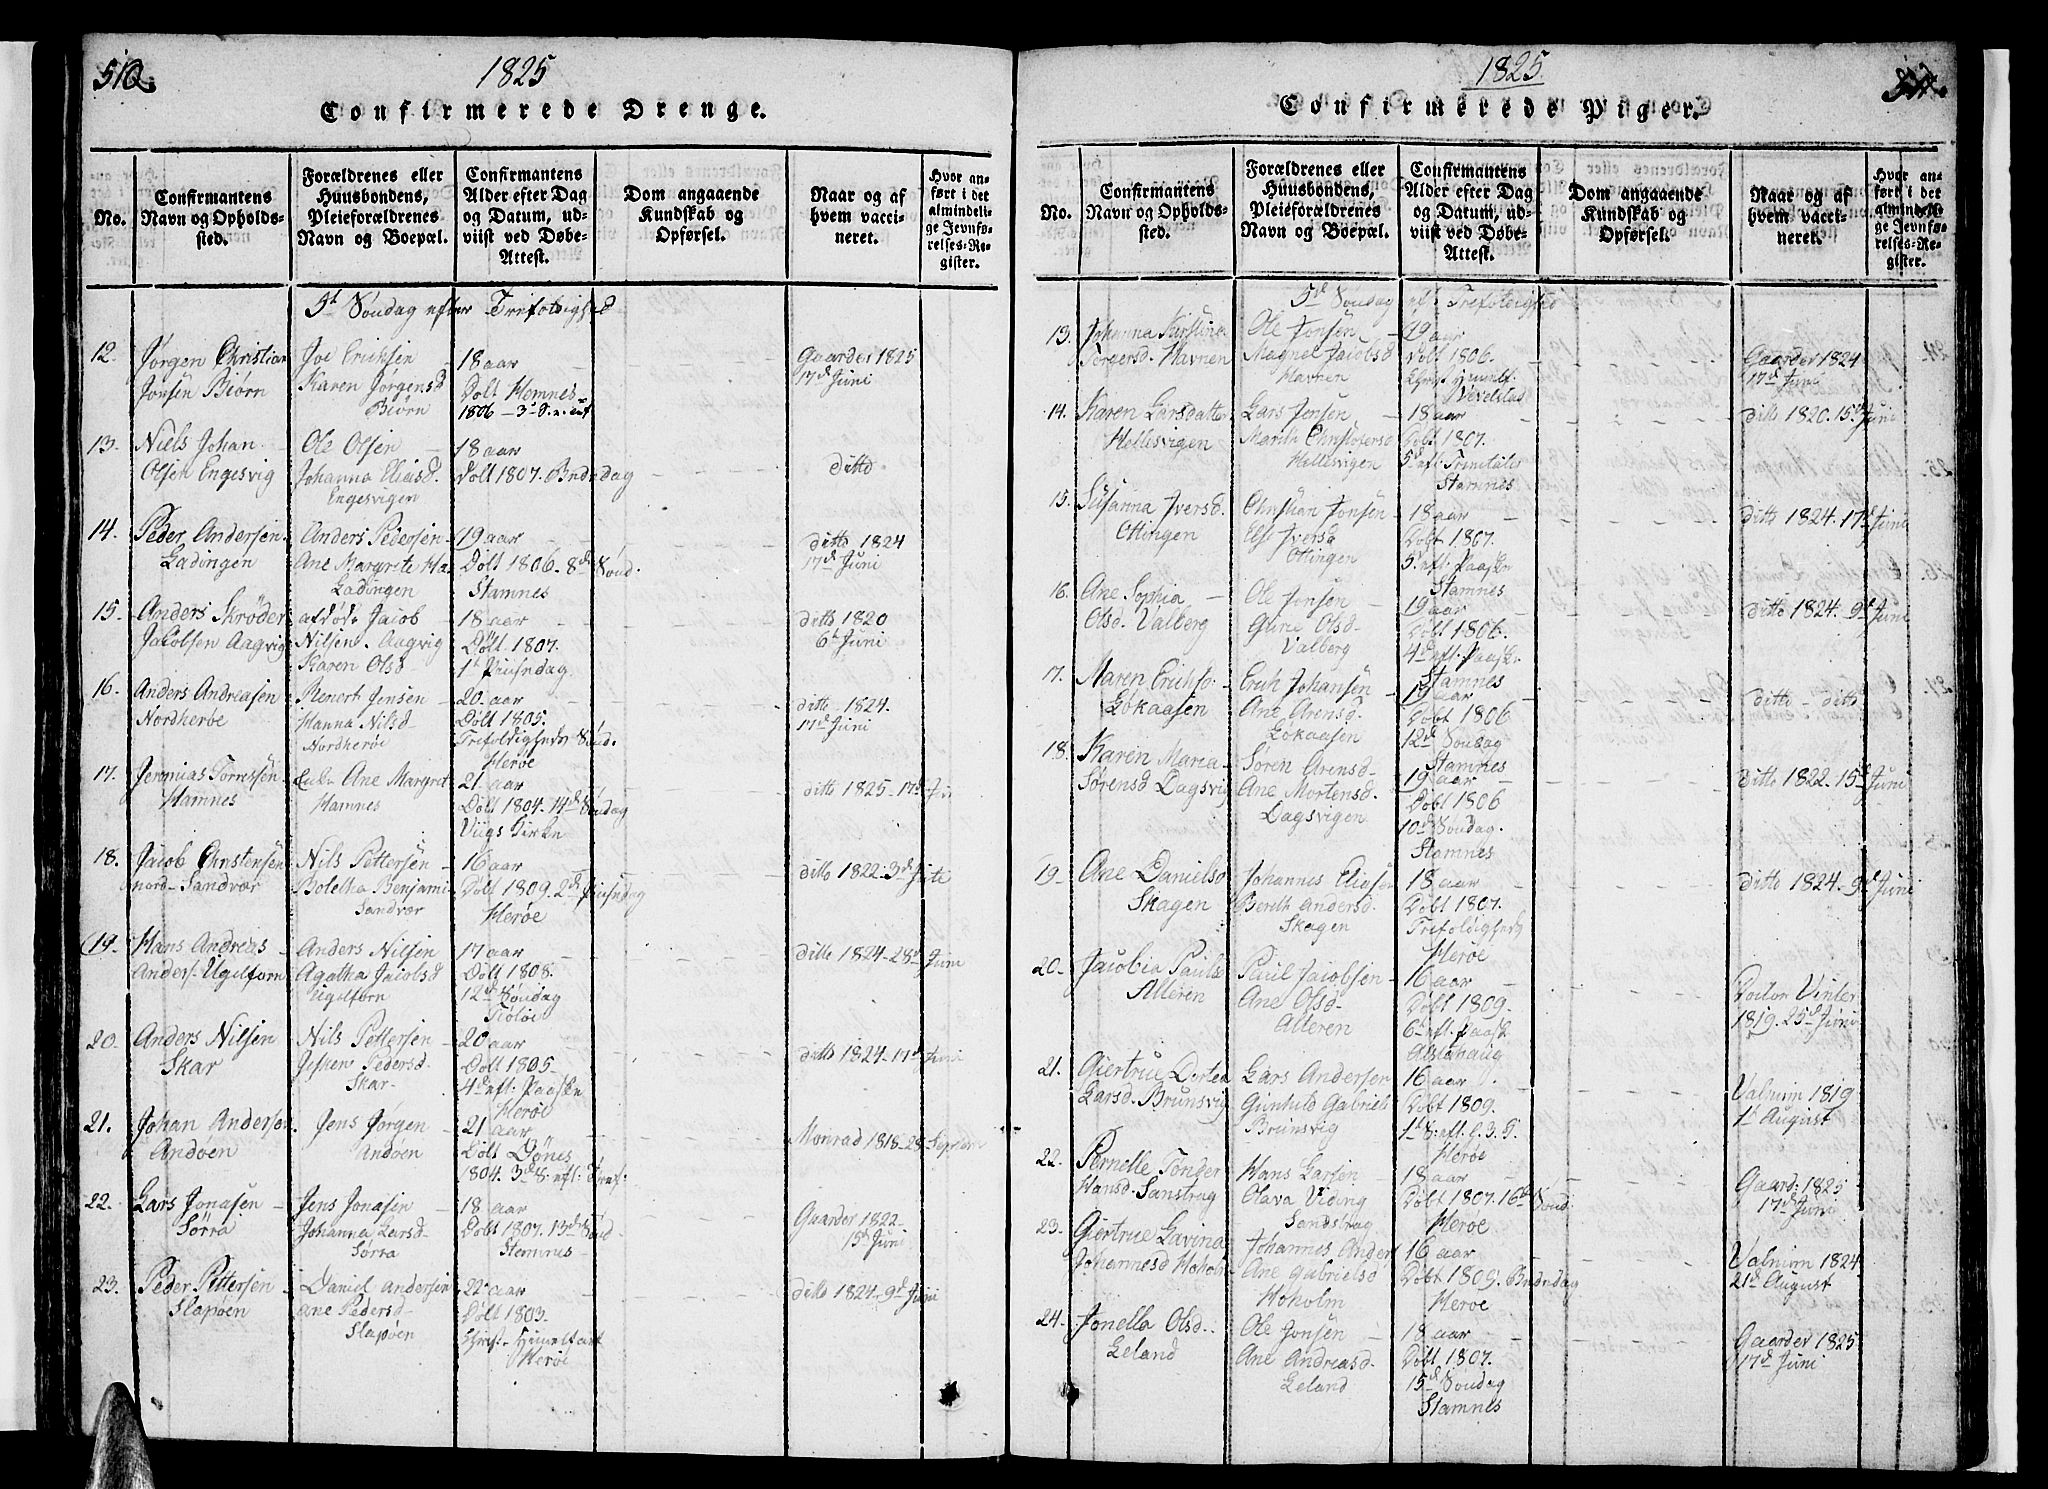 510.
1825
Confirmerede Drenge.
No.
Confirmantens Navn og Opholds-sted.
Forældrenes eller Huusbondens, Pleieforældrenes Navn og Boepæl.
Confirmantens Alder efter Dag og Datum, ud-viist ved Døbe-Attest.
Dom angaaende Kundskab og Opførsel.
Naar og af hvem vacci-neret.
Hvor an-ført i det almindeli-ge Jevnfø-relses-Re-gister.
5d Søndag efter Trefoldighed
12. Jørgen Christian Jonsen Biørn
Joe Erichsen Karen Jørgensd Biørn
18 aar Døbt Hamnes 1806 - 3d S.
Gaarder 1825 17d Juni
13. Niels Johan Olsen Engesvig
Ole Olsen Johanna Eliasd. Engesvigen
18 aar Døbt 1807.
ditto
14. Peder Andersen Ladingen
Anders Pedersen Ane Margrete Ha. Ladingen
19 aar Døbt 1806. 8d Sønd. Stamnes
ditto 1824 17d Juni
15. Anders Skrøder Jacobsen Aagvig
afdøde Jacob Nilsen Aagvig Karen Olsd
18 aar Døbt 1807. 1st Piinsedag
ditto 1820 6d Juni
16. Anders Andreasen Nordherøe
Renert Jensen Hanna Nilsd Nordherøe
20 aar Døbt 1805. Trefoldigheds Sønd. Herøe
ditto 1824. 17d Juni
17. Jeremias Tornesen Hamnes
Enke Ane Margret Hamnes
21 aar Døbt 1804. 14d Søndag Viigs Kirke
ditto 1825 - 17d Jun
18. Jacob Christensen nord-Sandvær
Nils Pettersen Boletha Benjami. Sandvær
16 aar Døbt 1809. 2d Piinsedag Herøe
ditto 1822. 3d
19. Hans Andreas Anders. Ugelforn
Anders Nilsen Agatha Jacobsd Ugelforn
17 aar Døbt 1808. 12d Søndag Tiøtøe
ditto 1824 - 28d Juni
20. Anders Nilsen Skar
Nils Pettersen Pedersd. Skar
20 aar Døbt 1805 4d eft: Paaske Herøe
ditto 1824 - 17d Juni
21. Johan Andersen Andøen
Jens Jørgen Andøen
21 aar Døbt Dønes 1804. 3d S. eft: Tref:
Monrad 1818 - 28 Septem
22. Lars Jonasen Sørra
Jens Jonasen Johanna Larsd. Sørra
18 aar Døbt 1807. 13d Sønd Stamnes
Gaarder 1822 15d Juni
23. Peder Pettersen Slapøen
Daniel Andersen Ane Pedersd Slapøen
22 aar Døbt 1803. Christ. Himelfart Herøe
ditto 1824. 9d Juni
1825
Confirmerede Piger.
No.
Confirmantens Navn og Opholds-sted.
Forældrenes eller Huusbondens, Pleieforældrenes Navn og Boepæl.
Confirmantens Alder efter Dag og Datum, ud-viist ved Døbe-Attest.
Dom angaaende Kundskab og Opførsel.
Naar og af hvem vacci-neret.
Hvor an-ført i det almindeli-ge Jevnfø-relses-Re-gister.
5d Søndag eft: Trefoldighed
13. Johanna Kirstina Havnen
Ole Jonsen Magnel Jacobsd Havnen
19 aar Døbt 1806. Christ Himelf: Vevelstad
Gaarder 1824 17d Juni
14. Karen Larsdatter Hellesvigen
Lars Jensen Marith Christophersd Hellesvigen
18 aar Døbt 1807. 5d eft: Trinitatis Stamnes
ditto 1820. 15d Juni
15. Susanna Iversd. Ottingen
Christian Jonsen Else Iversd Ottingen
18 aar Døbt 1807. 5d eft: Paaske Stamnes
ditto 1824. 17d Juni
16. Ane Sophia Olsd. Valberg
Ole Jonsen Guru Olsd. Valberg
19 aar Døbt 1806. 4d eft. Paaske Stamnes
ditto 1824. 9d Juni
17. Maren Erichsd. Løkaasen
Erich Johansen Ane Arensd. Løkaasen
19 aar Døbt 1806 12d Søndag Stamnes
ditto - ditto
18. Karen Maria Sørensd Dagsvig
Søren Arensd. Ane Mortensd. Dagsvigen
19 aar Døbt 1806 10d Søndag. Stamnes
ditto 1822. 15d Juni
19. Ane Danielsd Skagen
Johannes Eliasen Bereth Andersd. Skagen
18 aar Døbt 1807. Trefoldigheds Herøe
ditto 1824. 9d Juni
20. Jacobia Paulsd Alteren
Paul Jacobsen Ane Olsd. Alteren
16 aar Døbt 1809. 6d eft. Paaske Alstahaug
Doctor Vinter 1819. 25d Juni
21. Giertrue Dortea Larsd. Brunsvig
Lars Andersen Gunhild Gabriels Brunsvig
16 aar Døbt 1809. 1d S. eft. H. 3. K. Herøe
Valnum 1819 1d August
22. Pernelle Tønder Hansd. Sanstrag
Hans Larsen Olava Viding Sandstrag
18 aar Døbt 1807. 16d Sønd. Herøe
Gaard: 1825 17d Juni
23. Giertrue Lavina Johannesd Høholm
Johannes Anders Ane Gabrielsd Høholm
16 aar Døbt 1809. Herøe
Valnum 1824 21d August
24. Jonella Olsd. Leland
Ole Jonsen Ane Andreasd. Leland
18 aar Døbt 1807. 15d Søndag Stamnes
Gaarder 1825 17d Juni